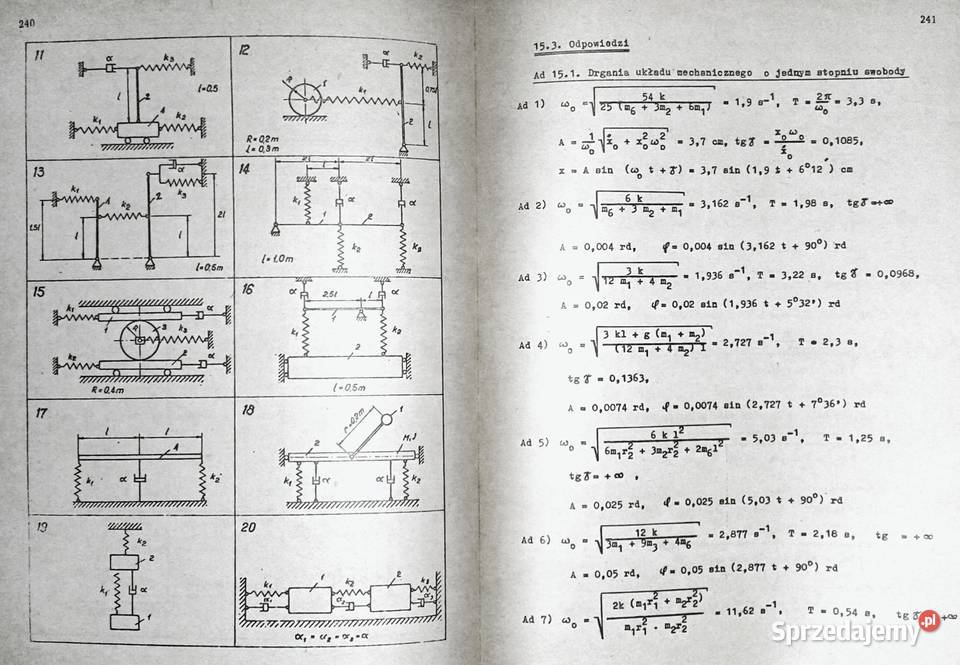 240
11
α
k₃
l=0,5
l
2
A
k₁
k₂
12
α
k₂
R
k₁
l
2
R=0,2m
l=0,3m
13
k₁
A
2
α
k₃
k₂
1,5l
l
l
2l
l=0,5m
14
2l
2l
l
k₁
α
α
1
2
k₂
k₃
l=1,0m
15
k₁
α
1
R
3
k₃
k₂
2
α
R=0,4m
16
α
2,5l
l
α
1
k₁
k₂
2
l=0,5m
17
l
l
A
k₁
α
k₂
18
1
r=0,2m
2
M,J
k₁
α
α
k₂
19
k₂
2
k₁
α
1
20
1
2
k₁
k₂
k₃
α₁
α₂
α₃
α₁ = α₂ = α₃ = α
241
15.3. Odpowiedzi
Ad 15.1. Drgania układu mechanicznego o jednym stopniu swobody
Ad 1) ω₀ = √(54 k / 25 (m₆ + 3m₂ + 6m₁)) = 1,9 s⁻¹, T = 2π/ω₀ = 3,3 s,
A = 1/ω₀ √(ẋ₀ + x₀²ω₀²) = 3,7 cm, tg γ = x₀ω₀/ẋ₀ = 0,1085,
x = A sin (ω₀ t + γ) = 3,7 sin (1,9 t + 6°12') cm
Ad 2) ω₀ = √(6 k / m₆ + 3 m₂ + m₁) = 3,162 s⁻¹, T = 1,98 s, tg γ = +∞
A = 0,004 rd, φ = 0,004 sin (3,162 t + 90°) rd
Ad 3) ω₀ = √(3 k / 12 m₁ + 4 m₂) = 1,936 s⁻¹, T = 3,22 s, tg γ = 0,0968,
A = 0,02 rd, φ = 0,02 sin (1,936 t + 5°32') rd
Ad 4) ω₀ = √(3 kl + g (m₁ + m₂) / (12 m₁ + 4 m₂) l) = 2,727 s⁻¹, T = 2,3 s,
tg γ = 0,1363,
A = 0,0074 rd, φ = 0,0074 sin (2,727 t + 7°36') rd
Ad 5) ω₀ = √(6 k l² / 6m₁r₂² + 3m₂r₂² + 2m₆l²) = 5,03 s⁻¹, T = 1,25 s,
tg γ = +∞ ,
A = 0,025 rd, φ = 0,025 sin (5,03 t + 90°) rd
Ad 6) ω₀ = √(12 k / 3m₁ + 9m₃ + 4m₆) = 2,877 s⁻¹, T = 2,18 s, tg = +∞
A = 0,05 rd, φ = 0,05 sin (2,877 t + 90°) rd
Ad 7) ω₀ = √(2k (m₁r₁² + m₂r₂²) / m₁r₁² . m₂r₂²) = 11,62 s⁻¹, T = 0,54 s, tg γ = +∞
Sprzedajemy.pl